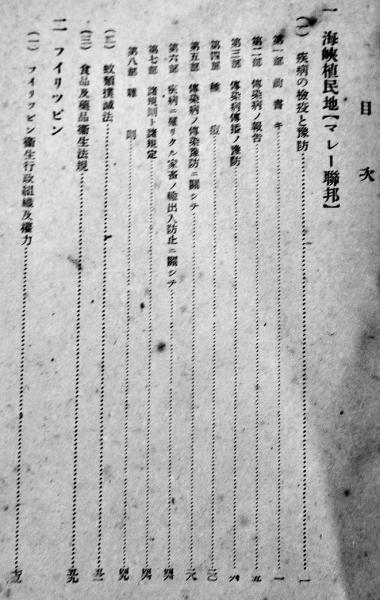 目次
一 海峽植民地【マレー聯邦】
(一) 疾病の檢疫と豫防……一
第一部 前書キ……一
第二部 傳染病ノ報告……五
第三部 傳染病傳播ノ豫防……六
第四部 種痘……二〇
第五部 傳染病ノ傳染豫防ニ關シテ……二六
第六部 疾病ニ罹リタル家畜ノ輸出入防止ニ關シテ
第七部 諸規則ト諸規定
第八部 雜則
(二) 蚊類撲滅法
(三) 食品及藥品衞生法規
二 フイリツピン
(一) フイリツピン衞生行政組織及權力